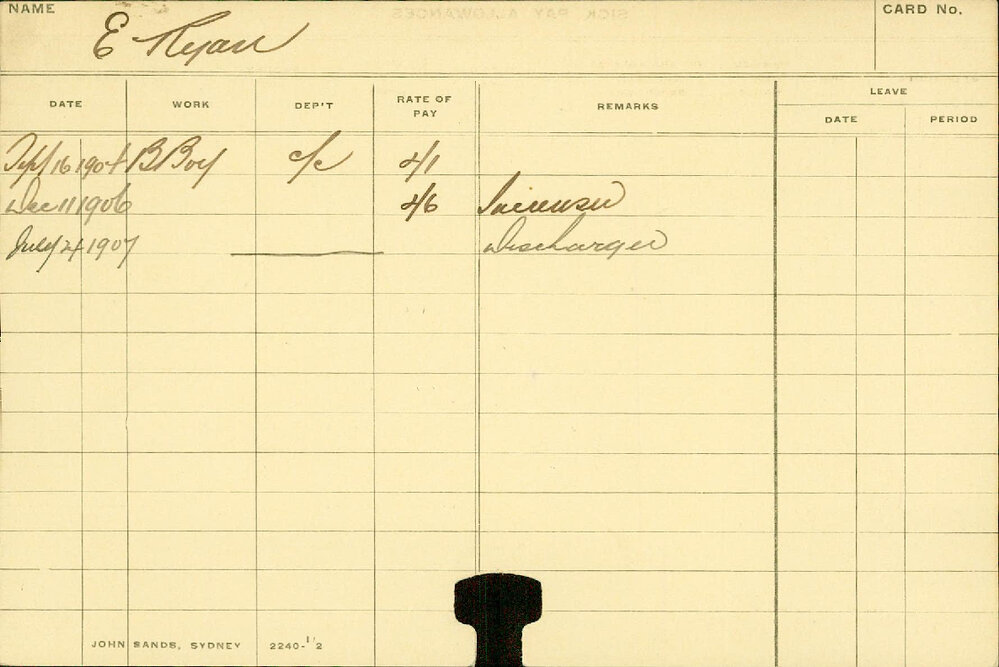 NAME
E Ryan
CARD No.
DATE WORK DEP'T RATE OF PAY REMARKS LEAVE
DATE PERIOD
Sept 16 1904 B Boy c/c 4/1
Dec 11 1906 4/6 Increase
July 24 1907 Discharged
JOHN SANDS, SYDNEY 2240-1/2